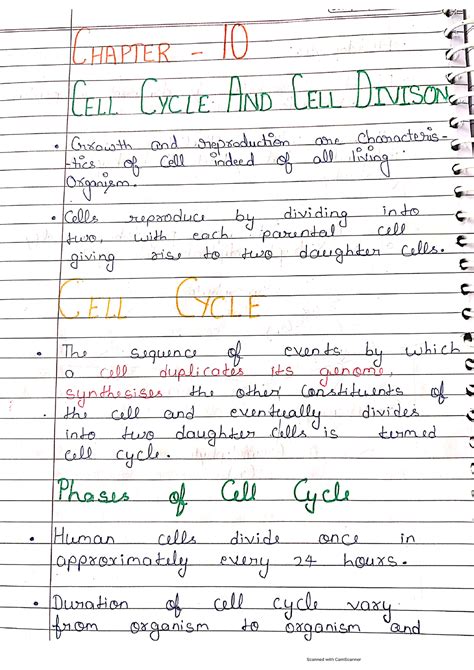 CHAPTER - 10
CELL CYCLE AND CELL DIVISON
• Growth and reproduction are Characteris-
-tics of Cell indeed of all living
Organism.
• Cells reproduce by dividing into
two, with each parental cell
giving rise to two daughter cells.
CELL CYCLE
• The sequence of events by which
a cell duplicates its genome,
synthesises the other Constituents of
the cell and eventually divides
into two daughter cells is termed
cell cycle.
Phases of Cell Cycle
• Human cells divide once in
approximately every 24 hours.
• Duration of cell cycle vary
from organism to organism and
Scanned with CamScanner